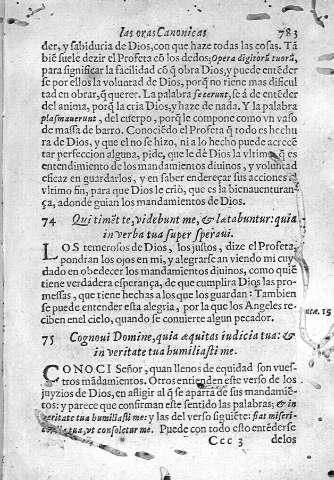 las oras Canonicas 783
der, y sabiduria de Dios, con que haze todas las cosas. Tã
biẽ suele dezir el Profeta cõ los dedos; Opera digitorũ tuorũ,
para significar la facilidad cõ q̃ obra Dios, y puede entẽder
se por ellos la voluntad de Dios, porq̃ no tiene mas dificul
tad en obrar, q̃ querer. La palabra fecerunt, se à de entẽder
del anima, porq̃ la cria Dios, y haze de nada. Y la palabra
plasmauerunt, del cuerpo, porq̃ le compone como vn vaso
de massa de barro. Conociẽdo el Profeta q̃ todo es hechu
ra de Dios, y que el no se hizo, ni a lo hecho puede acrecẽ
tar perfeccion alguna, pide, que le dè Dios la vltima, q̃ es
entendimiento de los mandamientos diuinos, y voluntad
eficaz en guardarlos, y en saber endereçar sus acciones al
vltimo fin, para que Dios le criò, que es la bienauenturan-
ça, adonde guian los mandamientos de Dios.
74 Qui timẽt te, videbunt me, & lætabuntur: quia
in verba tua super speraui.
LOS temerosos de Dios, los justos, dize el Profeta,
pondran los ojos en mi, y alegrarse an viendo mi cuy
dado en obedecer los mandamientos diuinos, como quiẽ
tiene verdadera esperança, de que cumplira Dios las pro-
messas, que tiene hechas a los que los guardan: Tambien
se puede entender esta alegria, por la que los Angeles re-
ciben en el cielo, quando se conuierte algun pecador.
ucæ. 15
75 Cognoui Domine, quia æquitas iudicia tua: &
in veritate tua humiliasti me.
CONOCI Señor, quan llenos de equidad son vues-
tros mãdamientos. Otros entienden este verso de los
juyzios de Dios, en afligir al q̃ se aparta de sus mandamiẽ-
tos: y parece que confirman este sentido las palabras; & in
veritate tua humiliasti me: y las del verso siguiẽte: fiat miseri-
tua, vt consoletur me. Puede con todo esto entẽderse
Ccc 3 delos